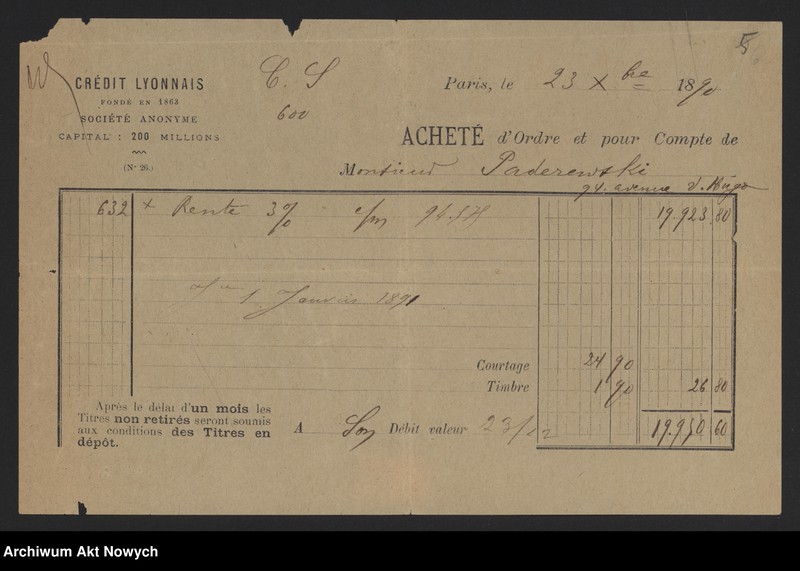 5
CRÉDIT LYONNAIS
FONDÉ EN 1863
SOCIÉTÉ ANONYME
CAPITAL : 200 MILLIONS
(Nº 26.)
C. S
600
Paris, le 23 Xbre 1890
ACHETÉ d'Ordre et pour Compte de
Monsieur Paderewski
94. avenue V. Hugo
632 + Rente 3% 19.923 80
1 Janvier 1891
Courtage 24 90
Timbre 1 90 26 80
Après le délai d'un mois les
Titres non retirés seront soumis
aux conditions des Titres en
dépôt.
A Son Débit valeur 23/12 19.950 60
Archiwum Akt Nowych